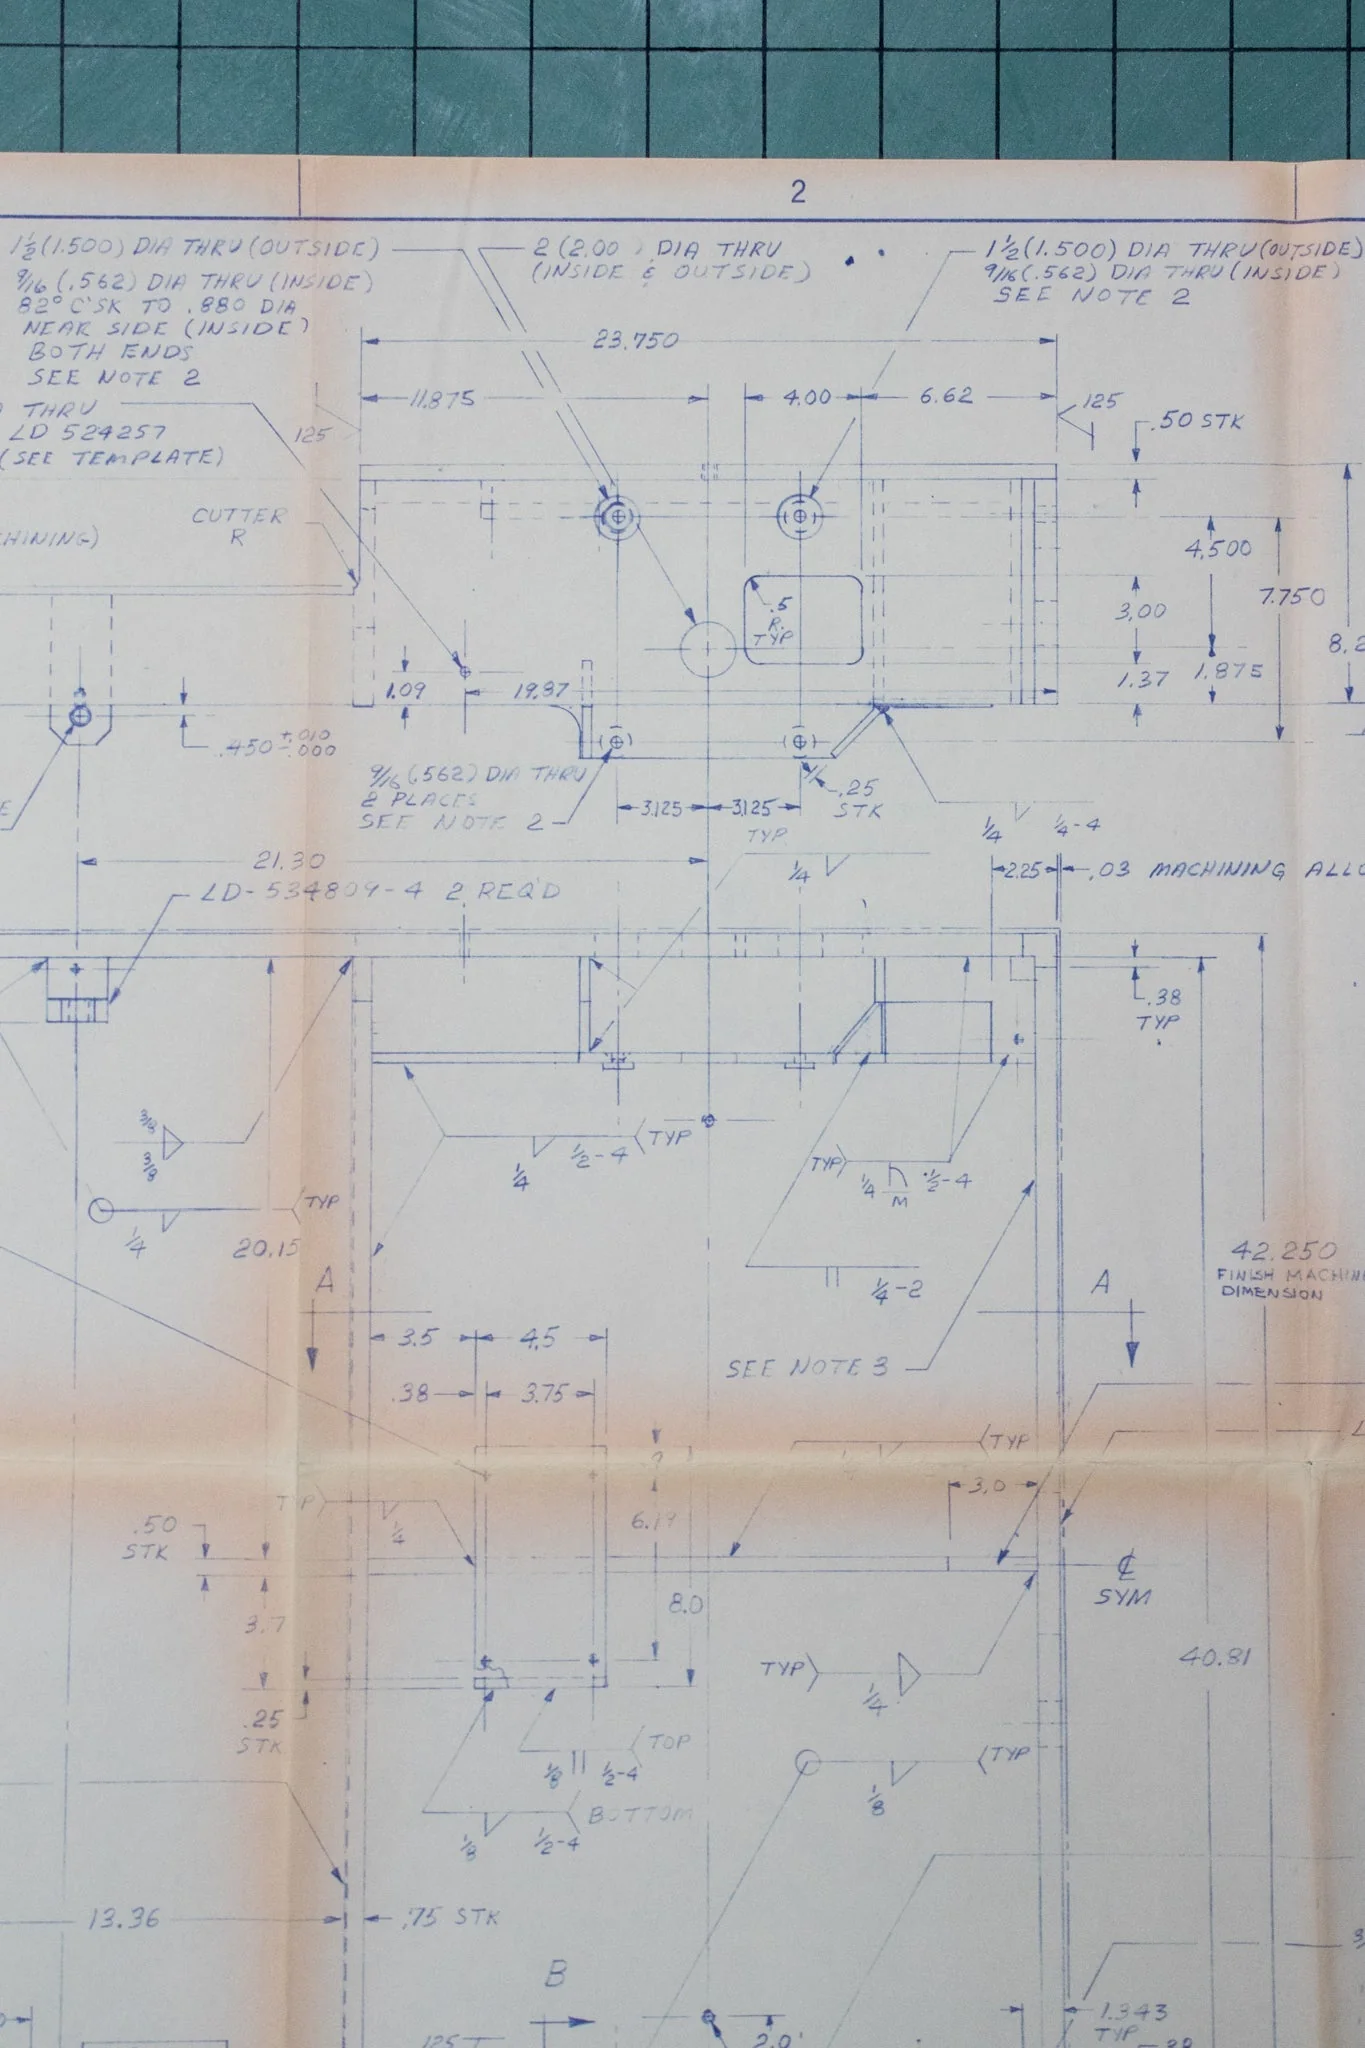 2
1½(1.500) DIA THRU (OUTSIDE)
9/16 (.562) DIA THRU (INSIDE)
82° C'SK TO .880 DIA
NEAR SIDE (INSIDE)
BOTH ENDS
SEE NOTE 2
2 (2.00 ) DIA THRU
(INSIDE & OUTSIDE)
1½(1.500) DIA THRU (OUTSIDE)
9/16(.562) DIA THRU (INSIDE)
SEE NOTE 2
THRU
LD 524257
(SEE TEMPLATE)
23.750
11.875
4.00
6.62
125
125
.50 STK
CUTTER
R
4.500
7.750
3.00
.5
R.
TYP
1.37
1.875
1.09
19.87
.450 +.010 -.000
9/16 (.562) DIA THRU
2 PLACES
SEE NOTE 2
3.125
3.125
.25
STK
TYP
1/4
1/4
1/4-4
21.30
LD-534809-4 2 REQ'D
2.25
.03 MACHINING
.38
TYP
3/8
3/8
1/4
1/2-4
TYP
TYP
1/4
M
1/2-4
TYP
1/4
20.15
1/4-2
42.250
FINISH
DIMENSION
A
A
3.5
4.5
SEE NOTE 3
.38
3.75
TYP
3.0
1/4
.50
STK
8.0
℄
SYM
3.7
40.81
TYP
1/4
.25
STK
TOP
1/8
1/2-4
TYP
1/8
BOTTOM
1/8
1/2-4
13.36
.75 STK
B
1.343
TYP
125
2.0